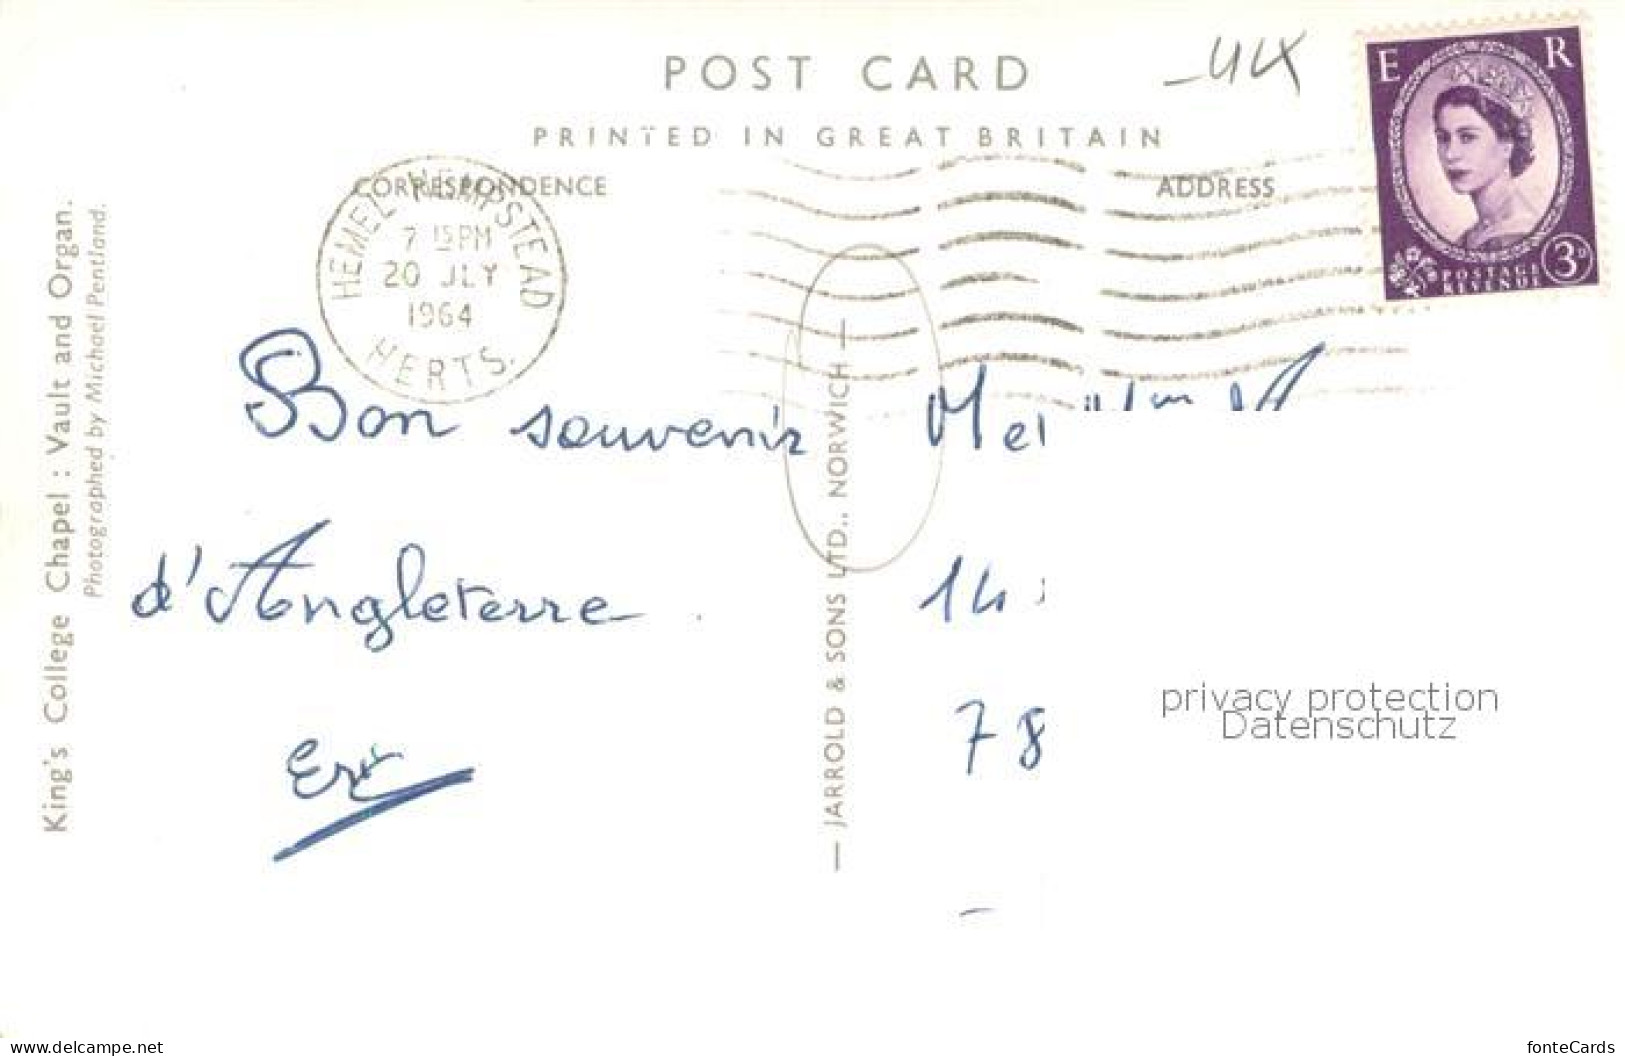 POST CARD
PRINTED IN GREAT BRITAIN
CORRESPONDENCE
ADDRESS
E R
POSTAGE
REVENUE
3D
HEMEL HEMPSTEAD
7 15 PM
20 JLY
1964
HERTS.
King's College Chapel : Vault and Organ.
Photographed by Michael Pentland.
Bon souvenir
d'Angleterre.
Eric
— JARROLD & SONS LTD., NORWICH —
14
78
privacy protection
Datenschutz
www.delcampe.net
fonteCards